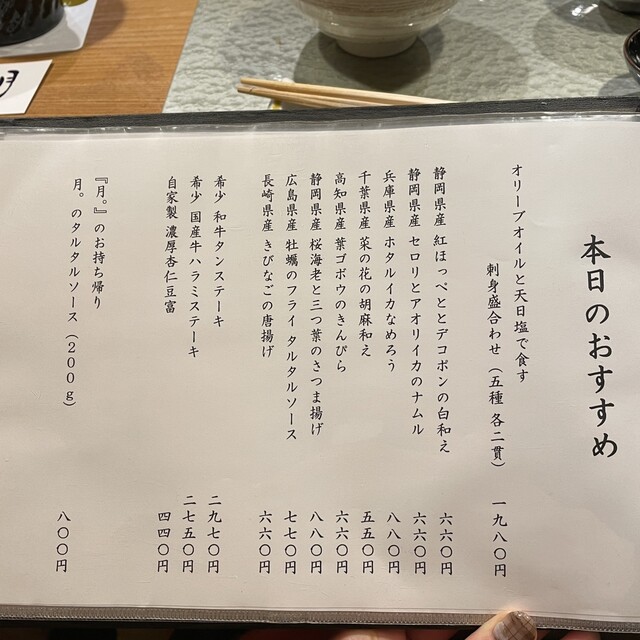 本日のおすすめ
オリーブオイルと天日塩で食す
刺身盛合わせ（五種 各二貫） 一九八〇円
静岡県産 紅ほっぺとデコポンの白和え 六六〇円
静岡県産 セロリとアオリイカのナムル 六六〇円
兵庫県産 ホタルイカなめろう 八八〇円
千葉県産 菜の花の胡麻和え 五五〇円
高知県産 葉ゴボウのきんぴら 六六〇円
静岡県産 桜海老と三つ葉のさつま揚げ 八八〇円
広島県産 牡蠣のフライ タルタルソース 七七〇円
長崎県産 きびなごの唐揚げ 六六〇円
希少 和牛タンステーキ 二九七〇円
希少 国産牛ハラミステーキ 二七五〇円
自家製 濃厚杏仁豆富 四四〇円
『月。』のお持ち帰り
月。のタルタルソース（２００ｇ） 八〇〇円
月